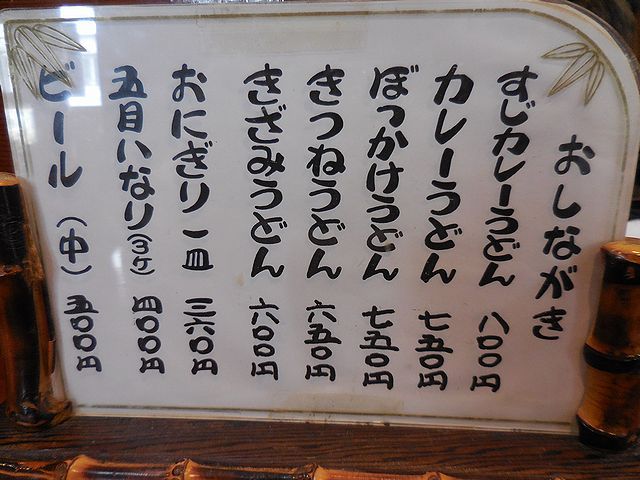 おしながき
すじカレーうどん 八〇〇円
カレーうどん 七五〇円
ぼっかけうどん 七五〇円
きつねうどん 六五〇円
きざみうどん 六〇〇円
おにぎり一皿 三六〇円
五目いなり(3ケ) 四〇〇円
ビール(中) 五〇〇円